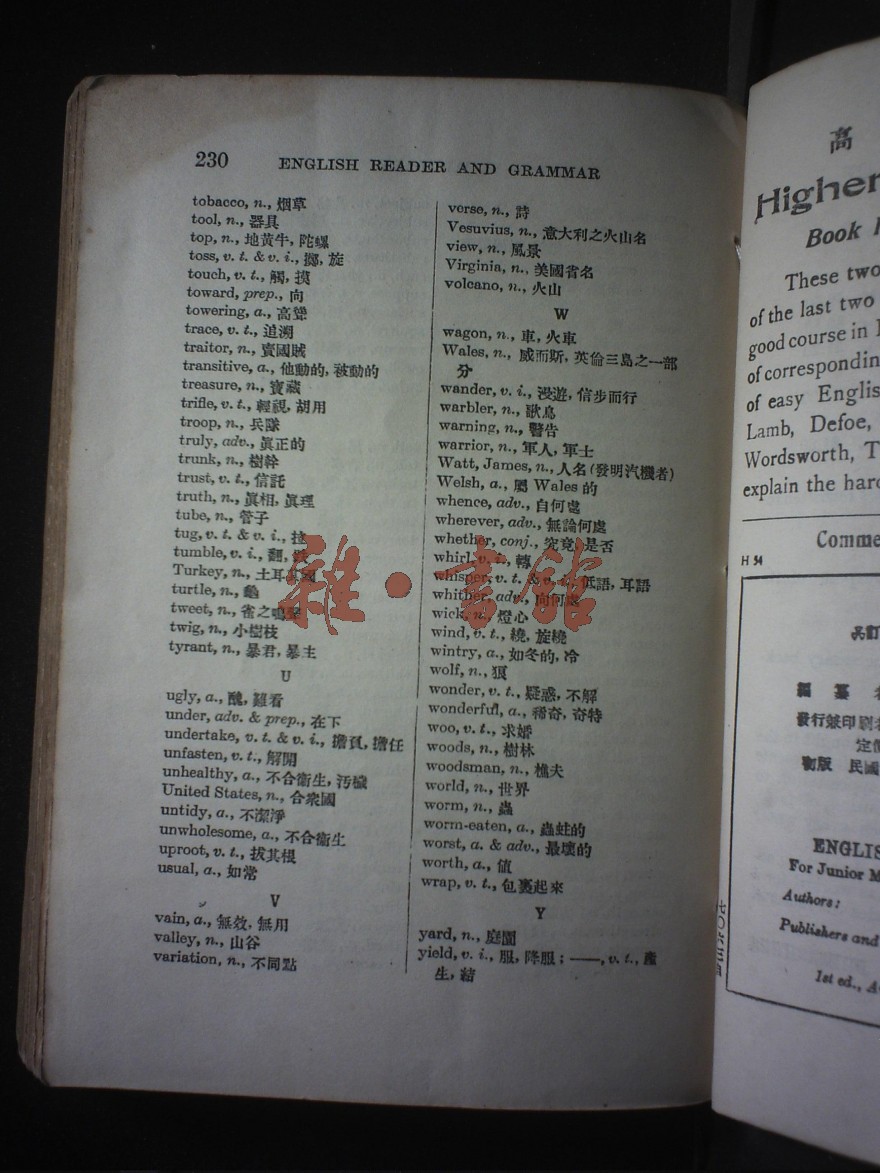 230 ENGLISH READER AND GRAMMAR
tobacco, n., 烟草
tool, n., 器具
top, n., 地黃牛, 陀螺
toss, v. t. & v. i., 擲, 旋
touch, v. t., 觸, 摸
toward, prep., 向
towering, a., 高聳
trace, v. t., 追溯
traitor, n., 賣國賊
transitive, a., 他動的, 被動的
treasure, n., 寶藏
trifle, v. t., 輕視, 胡用
troop, n., 兵隊
truly, adv., 眞正的
trunk, n., 樹幹
trust, v. t., 信託
truth, n., 眞相, 眞理
tube, n., 管子
tug, v. t. & v. i., 拉
tumble, v. i., 翻, 跌
Turkey, n., 土耳其國
turtle, n., 龜
tweet, n., 雀之鳴聲
twig, n., 小樹枝
tyrant, n., 暴君, 暴主
U
ugly, a., 醜, 難看
under, adv. & prep., 在下
undertake, v. t. & v. i., 擔負, 擔任
unfasten, v. t., 解開
unhealthy, a., 不合衞生, 汚穢
United States, n., 合衆國
untidy, a., 不潔淨
unwholesome, a., 不合衞生
uproot, v. t., 拔其根
usual, a., 如常
V
vain, a., 無效, 無用
valley, n., 山谷
variation, n., 不同點
verse, n., 詩
Vesuvius, n., 意大利之火山名
view, n., 風景
Virginia, n., 美國省名
volcano, n., 火山
W
wagon, n., 車, 火車
Wales, n., 威而斯, 英倫三島之一部
分
wander, v. i., 漫遊, 信步而行
warbler, n., 歌鳥
warning, n., 警告
warrior, n., 軍人, 軍士
Watt, James, n., 人名 (發明汽機者)
Welsh, a., 屬 Wales 的
whence, adv., 自何處
wherever, adv., 無論何處
whether, conj., 究竟, 是否
whirl, v. i., 轉
whisper, v. t. & v. i., 低語, 耳語
whither, adv., 向何處
wick, n., 燈心
wind, v. t., 繞, 旋繞
wintry, a., 如冬的, 冷
wolf, n., 狼
wonder, v. t., 疑惑, 不解
wonderful, a., 稀奇, 奇特
woo, v. t., 求婚
woods, n., 樹林
woodsman, n., 樵夫
world, n., 世界
worm, n., 蟲
worm-eaten, a., 蟲蛀的
worst, a. & adv., 最壞的
worth, a., 値
wrap, v. t., 包裹起來
Y
yard, n., 庭園
yield, v. i., 服, 降服; ——, v. t., 產
生, 結
雜·書館
高
Higher
Book
These two
of the last two
good course in
of correspondin
of easy Englis
Lamb, Defoe,
Wordsworth, T
explain the hard
Comme
H 54
編 纂
發行兼印刷者
定價
初版 民國
ENGLIS
For Junior M
Authors:
Publishers and
1st ed., A